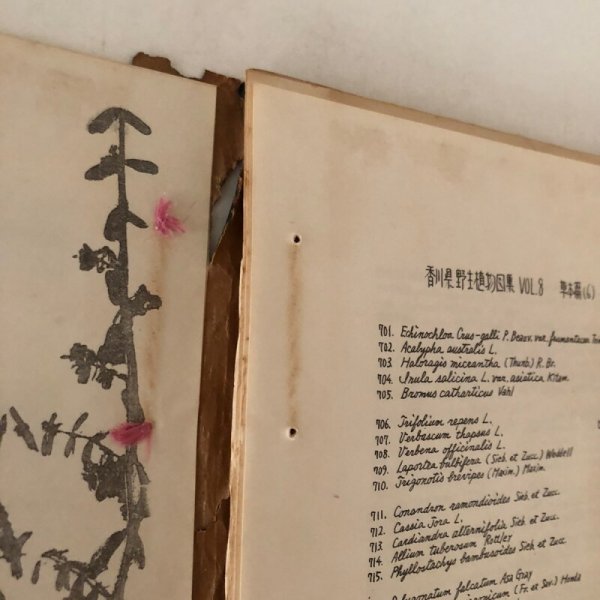 香川県野生植物図集 VOL.8 草本篇(6)
701. Echinochloa Crus-galli P. Beauv. var. frumentacea
702. Acalypha australis L.
703. Haloragis micrantha (Thunb.) R. Br.
704. Inula salicina L. var. asiatica Kitam.
705. Bromus catharticus Vahl
706. Trifolium repens L.
707. Verbascum thapsus L.
708. Verbena officinalis L.
709. Laportea bulbifera (Sieb. et Zucc.) Weddell
710. Trigonotis brevipes (Maxim.) Maxim.
711. Conandron ramondioides Sieb. et Zucc.
712. Cassia Tora L.
713. Cardiandra alternifolia Sieb. et Zucc.
714. Allium tuberosum Rottler
715. Phyllostachys bambusoides Sieb. et Zucc.
Polygonatum falcatum Asa Gray
(Fr. et Sav.) Honda